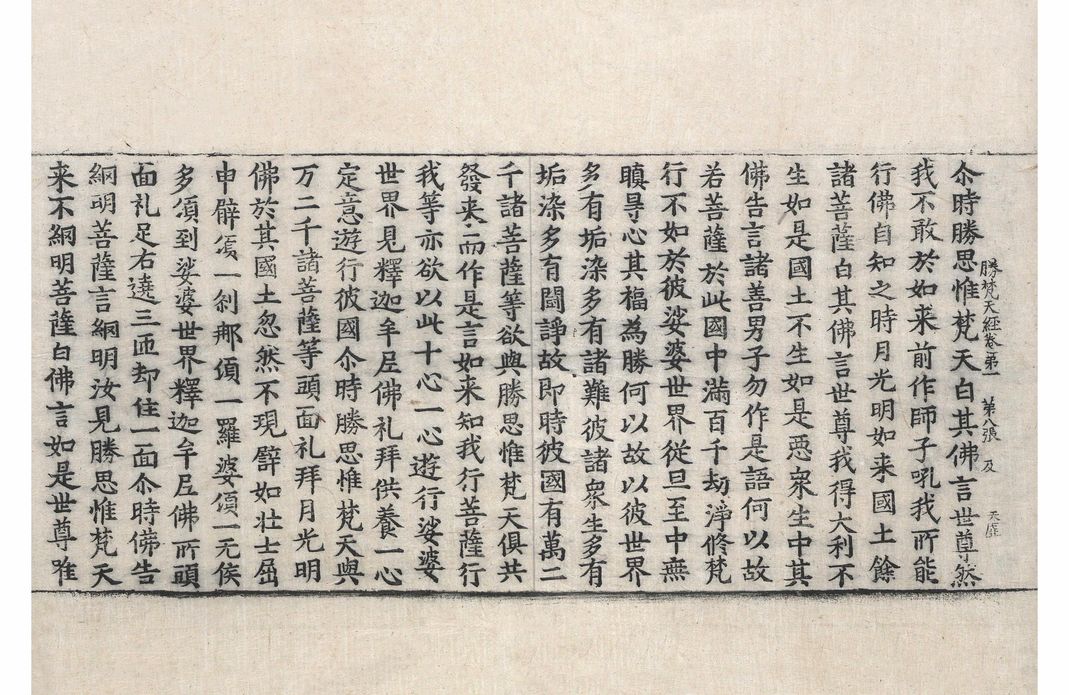 尒時勝思惟梵天白其佛言世尊然
勝梵天經卷第一 第八張 及
我不敢於如来前作師子吼我所能
行佛自知之時月光明如来國土餘
諸菩薩白其佛言世尊我得大利不
生如是國土不生如是惡衆生中其
佛告言諸善男子勿作是語何以故
若菩薩於此國中滿百千劫淨脩梵
行不如於彼娑婆世界從旦至中無
瞋㝵心其福為勝何以故以彼世界
多有垢染多有諸難彼諸衆生多有
垢染多有鬪諍故即時彼國有萬二
千諸菩薩等欲與勝思惟梵天俱共
發来而作是言如来知我行菩薩行
我等亦欲以此十心一心遊行娑婆
世界見釋迦牟尼佛礼拜供養一心
定意遊行彼國尒時勝思惟梵天與
万二千諸菩薩等頭面礼拜月光明
佛於其國土忽然不現譬如壮士屈
申臂頃一刹那頃一羅婆頃一无侯
多頃到娑婆世界釋迦牟尼佛所頭
面礼足右遶三匝却住一面尒時佛告
網明菩薩言網明汝見勝思惟梵天
来不網明菩薩白佛言如是世尊唯